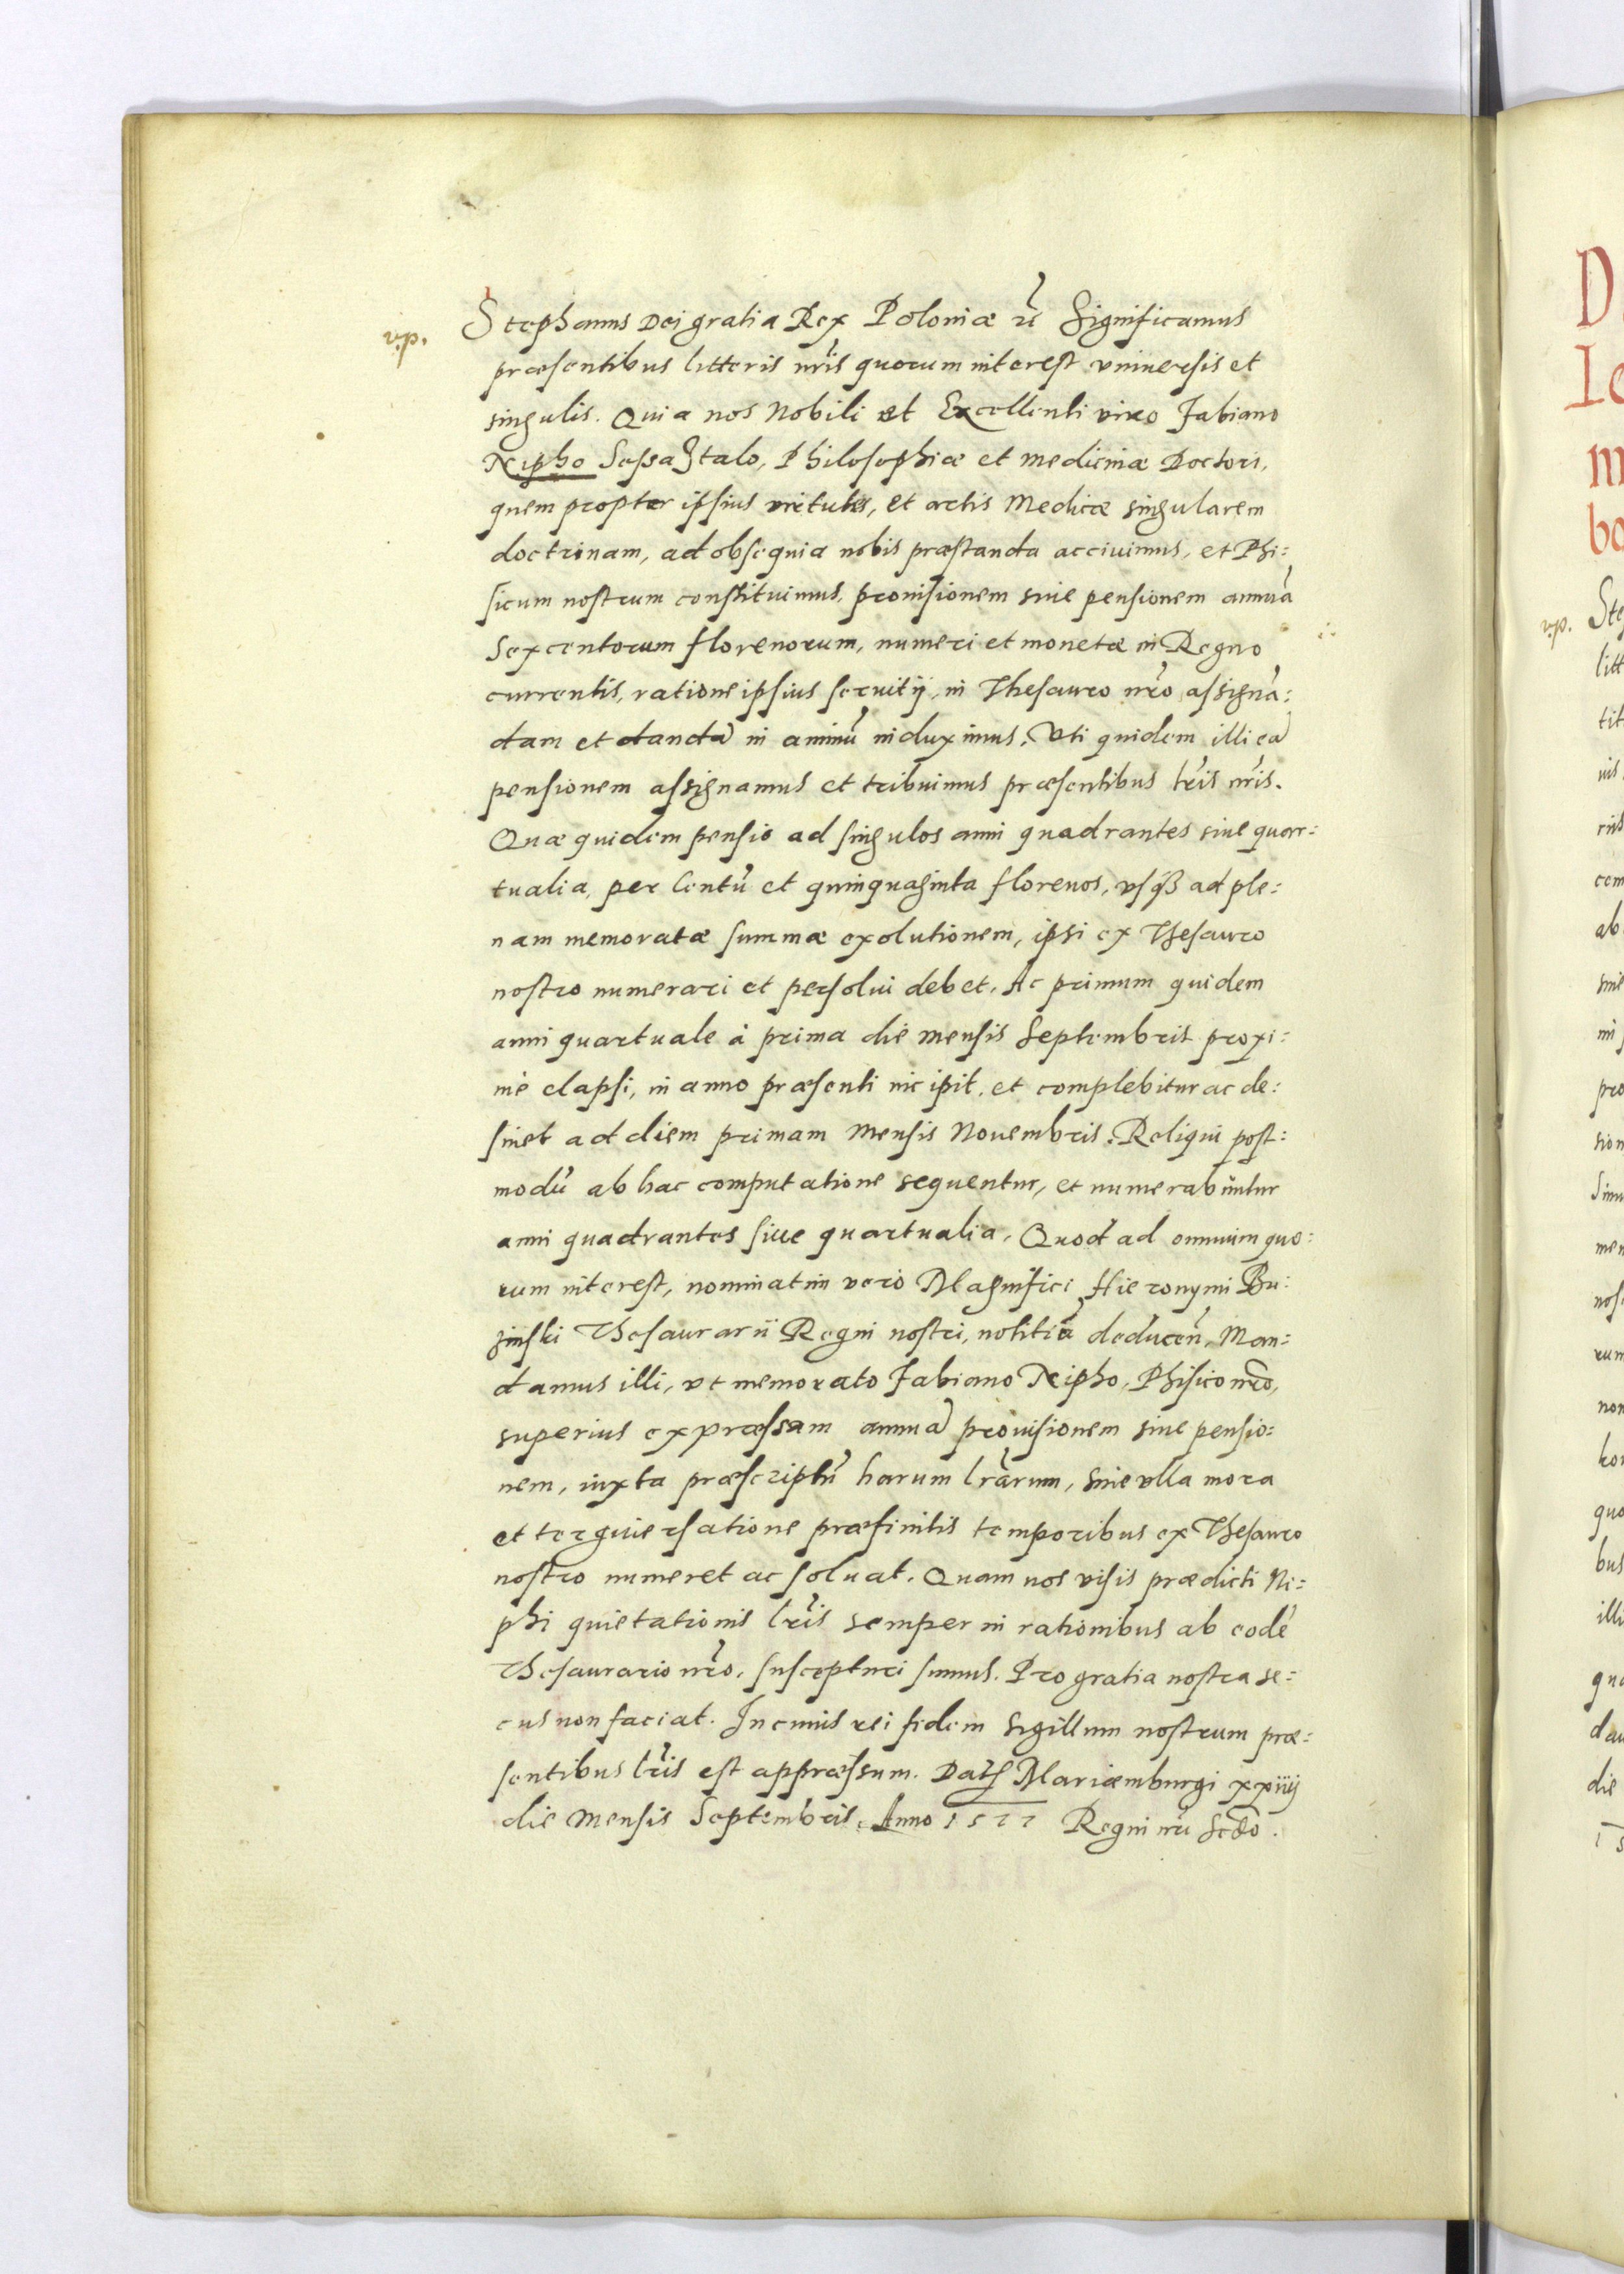 v.p.
Stephanus Dei gratia Rex Poloniæ &c̃ Significamus
præsentibus litteris nr̃is quorum interest vniuersis et
singulis. Quia nos Nobili et Excellenti viro Fabiano
Nipho Sessa Italo, Philosophiæ et medicinæ Doctori,
quem propter ipsius virtutes, et artis Medicæ singularem
doctrinam, ad obsequia nobis præstanda acciuimus, et Phi:
sicum nostrum constituimus, prouisionem siue pensionem annuã
Sexcentorum florenorum, numeri et monetæ in Regno
currentis, ratione ipsius seruitij, in Thesauro nr̃o assignã:
dam et dandã in animũ induximus. Vti quidem illi eã
pensionem assignamus et tribuimus præsentibus lr̃is nr̃is.
Quæ quidem pensio ad singulos anni quadrantes siue quar:
tualia, per Centũ et quinquaginta florenos, vsqȝ ad ple:
nam memoratæ summæ exolutionem, ipsi ex Thesauro
nostro numerari et persolui debet. Ac primum quidem
anni quartuale à prima die mensis Septembris proxi:
mè elapsi, in anno præsenti incipit, et complebitur ac de:
sinet ad diem primam Mensis Nouembris. Reliqui post:
modũ ab hac computatione sequentur, et numerabuntur
anni quadrantes siue quartualia. Quod ad omnium quo:
rum interest, nominatim verò Magnifici Hieronymi Bu:
zinski Thesaurarii Regni nostri, notitiã deducen̄, Man:
damus illi, vt memorato Fabiano Nipho, Phisico nr̃o,
superius expræssam annuã prouisionem siue pensio:
nem, iuxta præscriptũ harum lr̃arum, sine vlla mora
et terguiersatione præfinitis temporibus ex Thesauro
nostro numeret ac soluat. Quam nos visis prædicti Ni:
phi quietationis lr̃is semper in rationibus ab eodẽ
Thesaurario nr̃o, suscepturi sumus. Pro gratia nostra se:
cus non faciat. In cuius rei fidem sigillum nostrum præ:
sentibus lr̃is est appræssum. Datȝ Mariæmburgi xxiiij
die Mensis Septembris, Anno 1577 Regni nr̃i Scd̃o.
v.p.